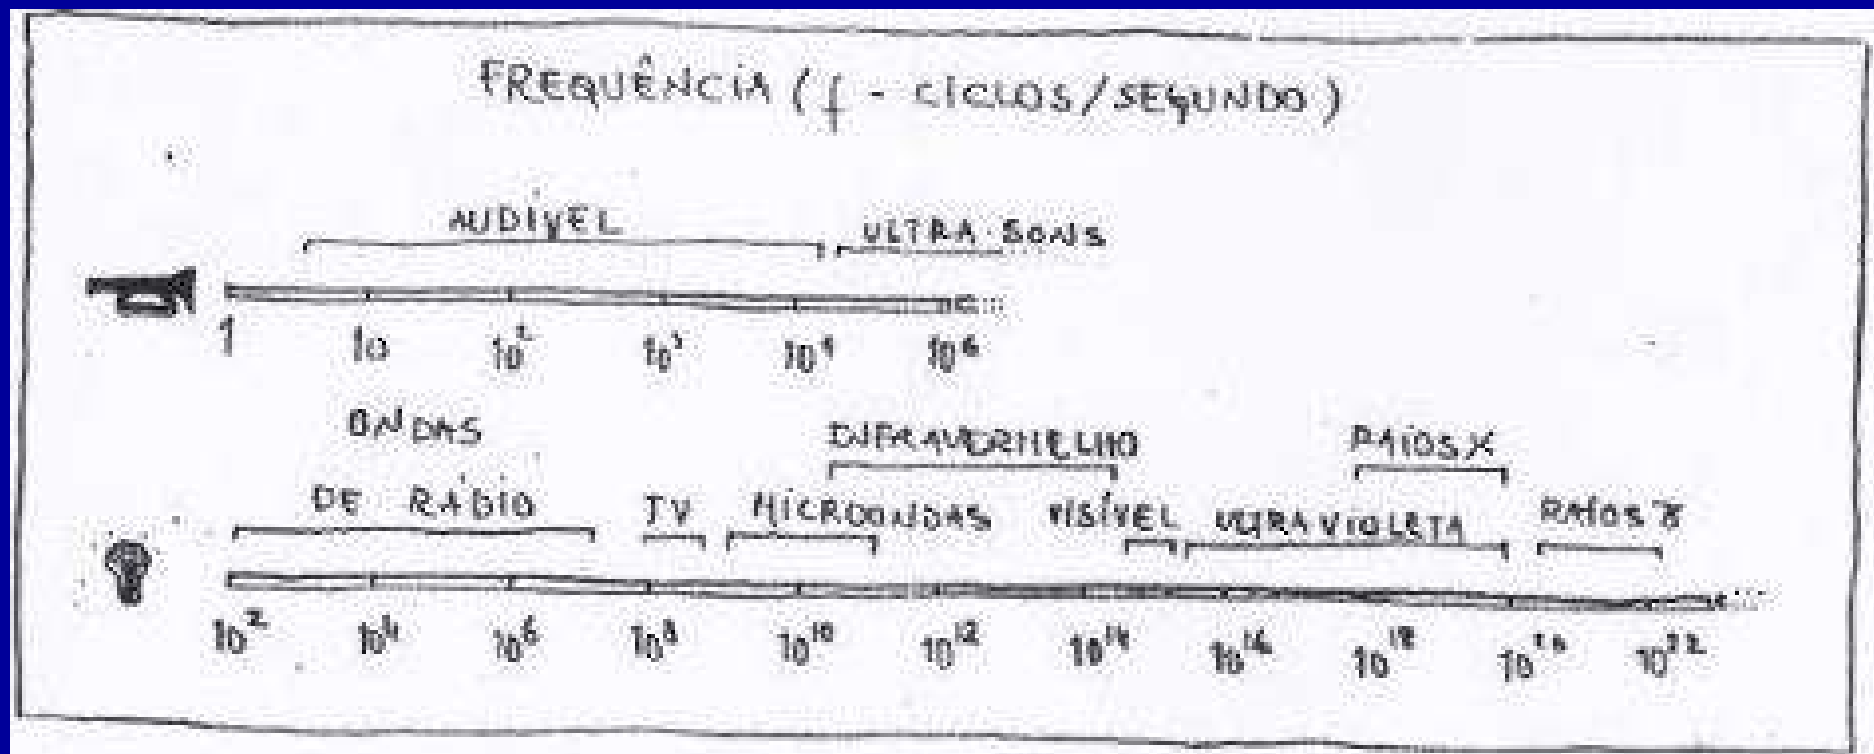 FREQUÊNCIA (f - CICLOS/SEGUNDO)
AUDÍVEL
ULTRA-SONS
1 10 10² 10³ 10⁴ 10⁶
ONDAS
DE RÁDIO
TV
MICROONDAS
INFRAVERMELHO
VISÍVEL
ULTRAVIOLETA
RAIOS X
RAIOS γ
10² 10⁴ 10⁶ 10⁸ 10¹⁰ 10¹² 10¹⁴ 10¹⁶ 10¹⁸ 10²⁰ 10²²